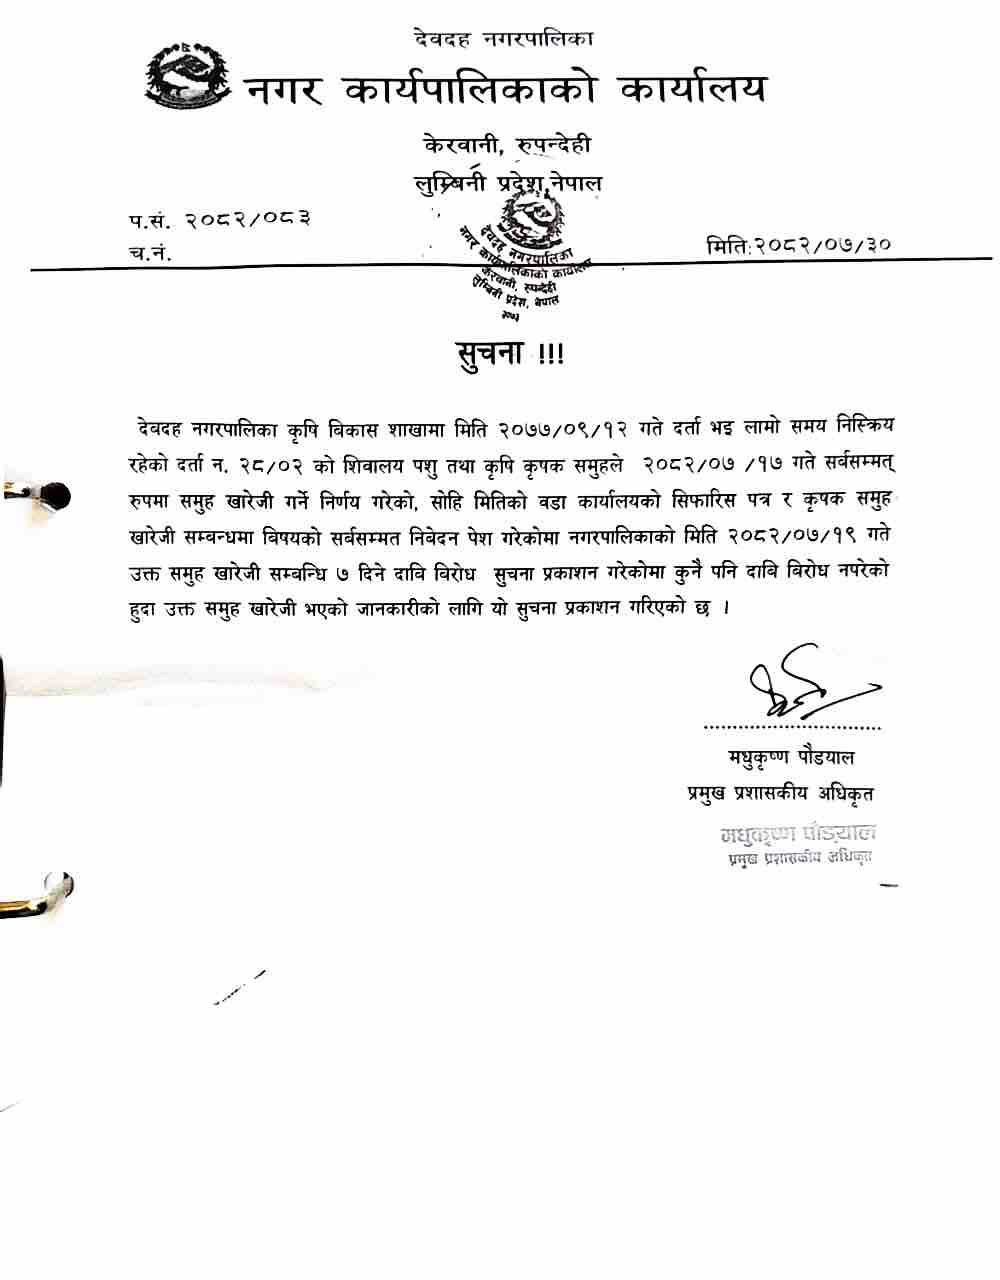 देवदह नगरपालिका
नगर कार्यपालिकाको कार्यालय
केरवानी, रुपन्देही
लुम्बिनी प्रदेश,नेपाल
प.सं. २०८२/०८३
च.नं.
मिति:२०८२/०७/३०
देवदह नगरपालिका
नगर कार्यपालिकाको कार्यालय
केरवानी, रुपन्देही
लुम्बिनी प्रदेश, नेपाल
२०७३
सुचना !!!
देवदह नगरपालिका कृषि विकास शाखामा मिति २०७७/०९/१२ गते दर्ता भइ लामो समय निस्क्रिय
रहेको दर्ता न. २८/०२ को शिवालय पशु तथा कृषि कृषक समुहले २०८२/०७ /१७ गते सर्वसम्मत्
रुपमा समुह खारेजी गर्ने निर्णय गरेको, सोहि मितिको वडा कार्यालयको सिफारिस पत्र र कृषक समुह
खारेजी सम्बन्धमा विषयको सर्वसम्मत निबेदन पेश गरेकोमा नगरपालिकाको मिति २०८२/०७/१९ गते
उक्त समुह खारेजी सम्बन्धि ७ दिने दावि विरोध सुचना प्रकाशन गरेकोमा कुनै पनि दाबि बिरोध नपरेको
हुदा उक्त समुह खारेजी भएको जानकारीको लागि यो सुचना प्रकाशन गरिएको छ ।
मधुकृष्ण पौडयाल
प्रमुख प्रशासकीय अधिकृत
मधुकृष्ण पौडयाल
प्रमुख प्रशासकीय अधिकृत